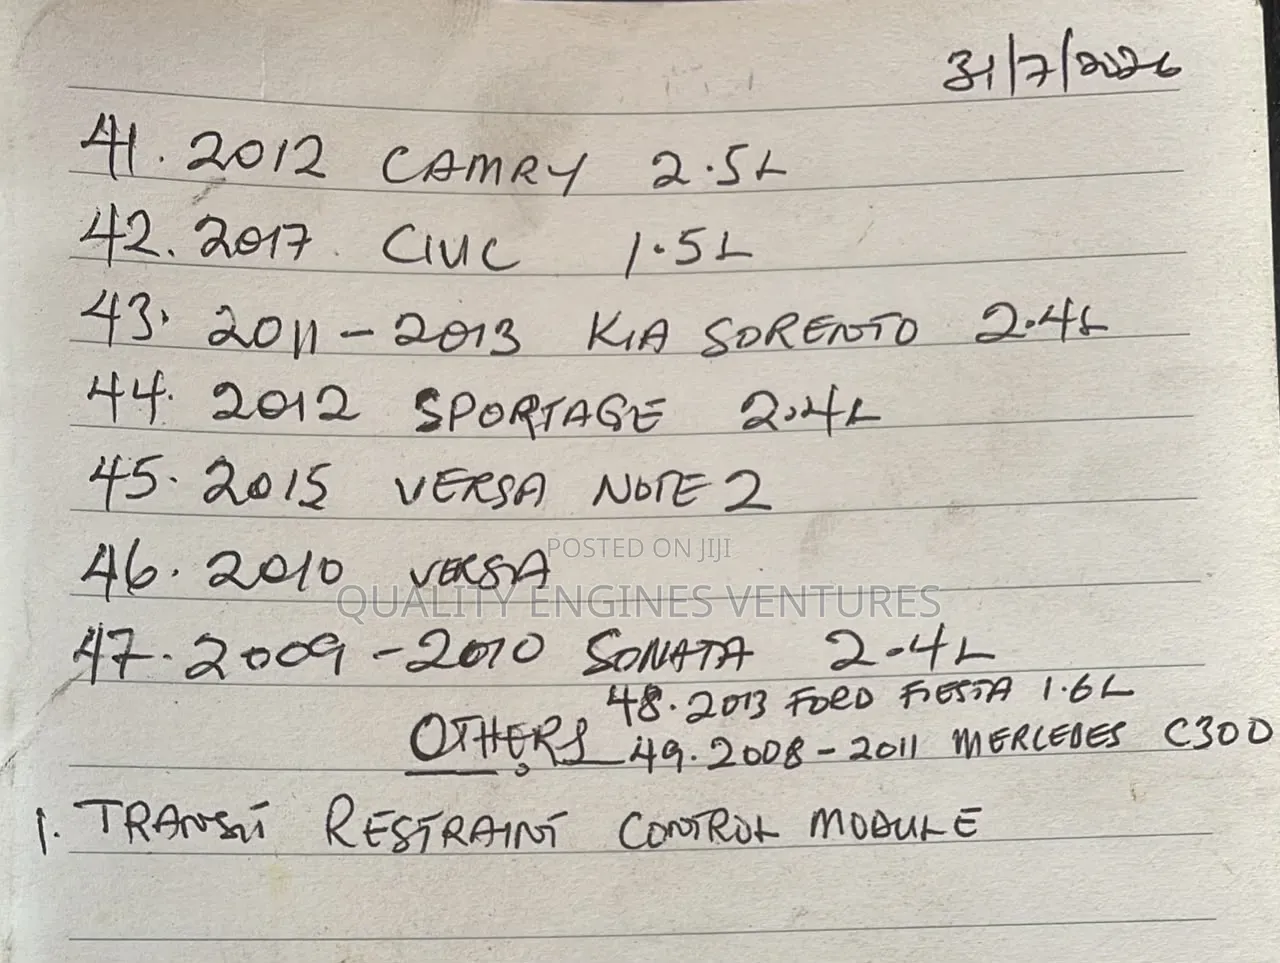 31/7/2026
41. 2012 CAMRY 2.5L
42. 2017 CIVIC 1.5L
43. 2011-2013 KIA SORENTO 2.4L
44. 2012 SPORTAGE 2.4L
45. 2015 VERSA NOTE 2
POSTED ON JIJI
46. 2010 VERSA
QUALITY ENGINES VENTURES
47. 2009-2010 SONATA 2.4L
48. 2013 FORD FIESTA 1.6L
OTHERS
49. 2008-2011 MERCEDES C300
1. TRANSIT RESTRAINT CONTROL MODULE